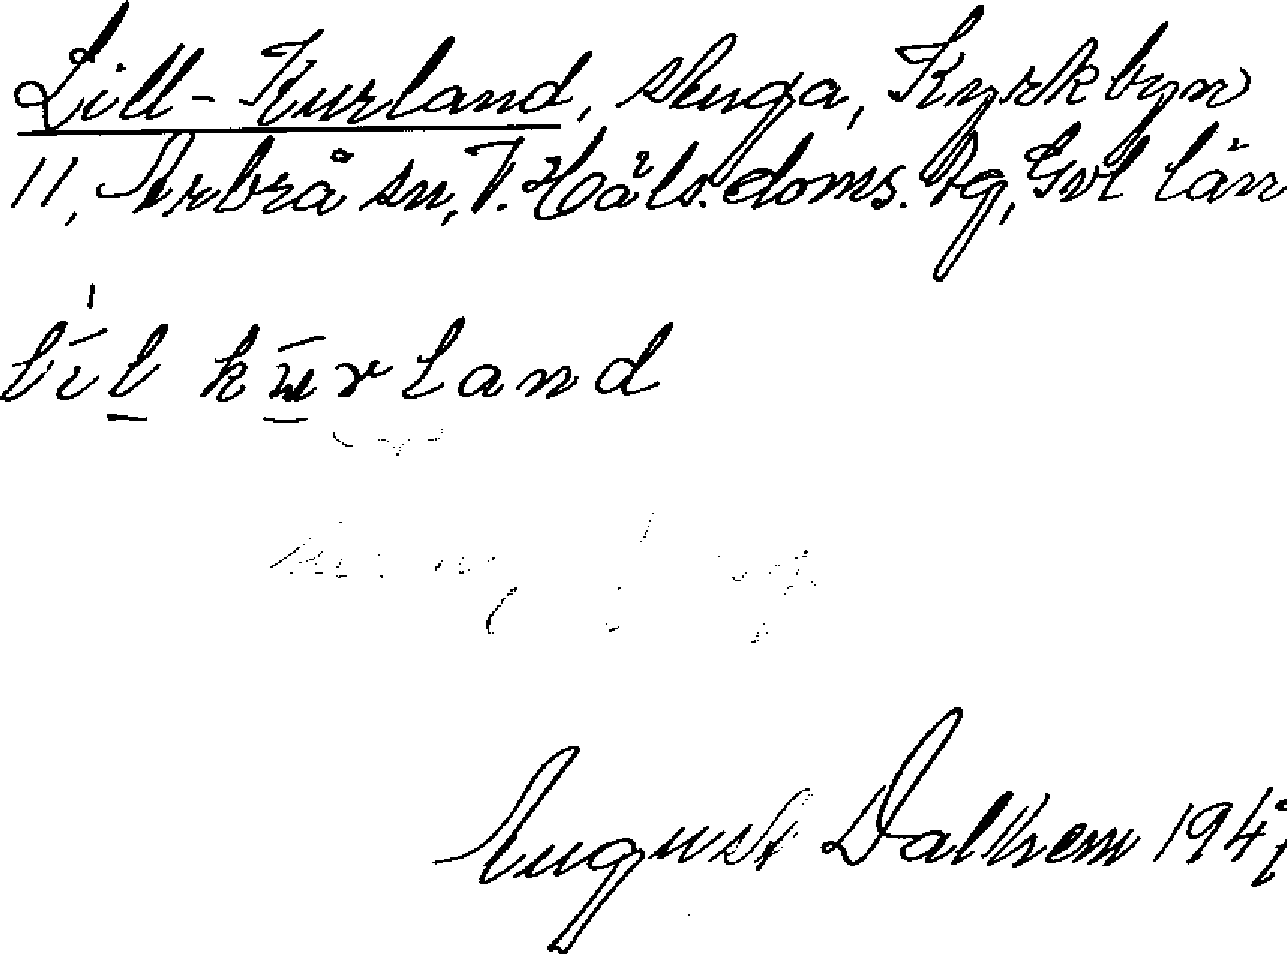 Lill-Kurland, stuga, Kyrkbyn
11, Arbrå sn, V. Häls. doms. Dg, Gvl län
līl kūrland
August Dalhem 194